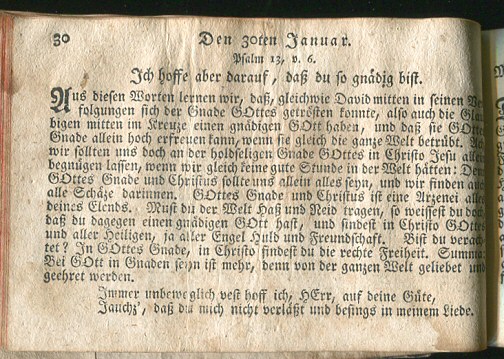 30
Den 30ten Januar.
Psalm 13, v. 6.
Ich hoffe aber darauf, daß du so gnädig bist.
Aus diesen Worten lernen wir, daß, gleichwie David mitten in seinen Ver
folgungen sich der Gnade GOttes getrösten konnte, also auch die Glau
bigen mitten im Kreuze einen gnädigen GOtt haben, und daß sie GOttes
Gnade allein hoch erfreuen kann, wenn sie gleich die ganze Welt betrübt. Ach
wir sollten uns doch an der holdseligen Gnade GOttes in Christo Jesu allein
begnügen lassen, wenn wir gleich keine gute Stunde in der Welt hätten: Denn
GOttes Gnade und Christus sollte uns allein alles seyn, und wir finden auch
alle Schäze darinnen. GOttes Gnade und Christus ist eine Arzenei alles
deines Elends. Must du der Welt Haß und Neid tragen, so weissest du doch
daß du dagegen einen gnädigen GOtt hast, und findest in Christo GOttes
und aller Heiligen, ja aller Engel Huld und Freundschaft. Bist du verach
tet? In GOttes Gnade, in Christo findest du die rechte Freiheit. Summa:
Bei GOtt in Gnaden seyn ist mehr, denn von der ganzen Welt geliebet und
geehret werden.
Immer unbeweglich vest hoff ich, HErr, auf deine Güte,
Jauchz', daß du mich nicht verläßt und besings in meinem Liede.